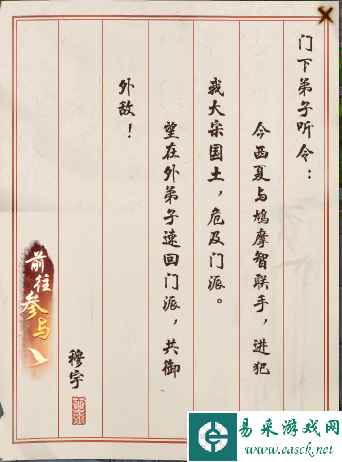 门下弟子听令：
今西夏与鸠摩智联手，进犯
我大宋国土，危及门派。
望在外弟子速回门派，共御
外敌！
穆宇
前往参与
易采游戏网
www.easck.net